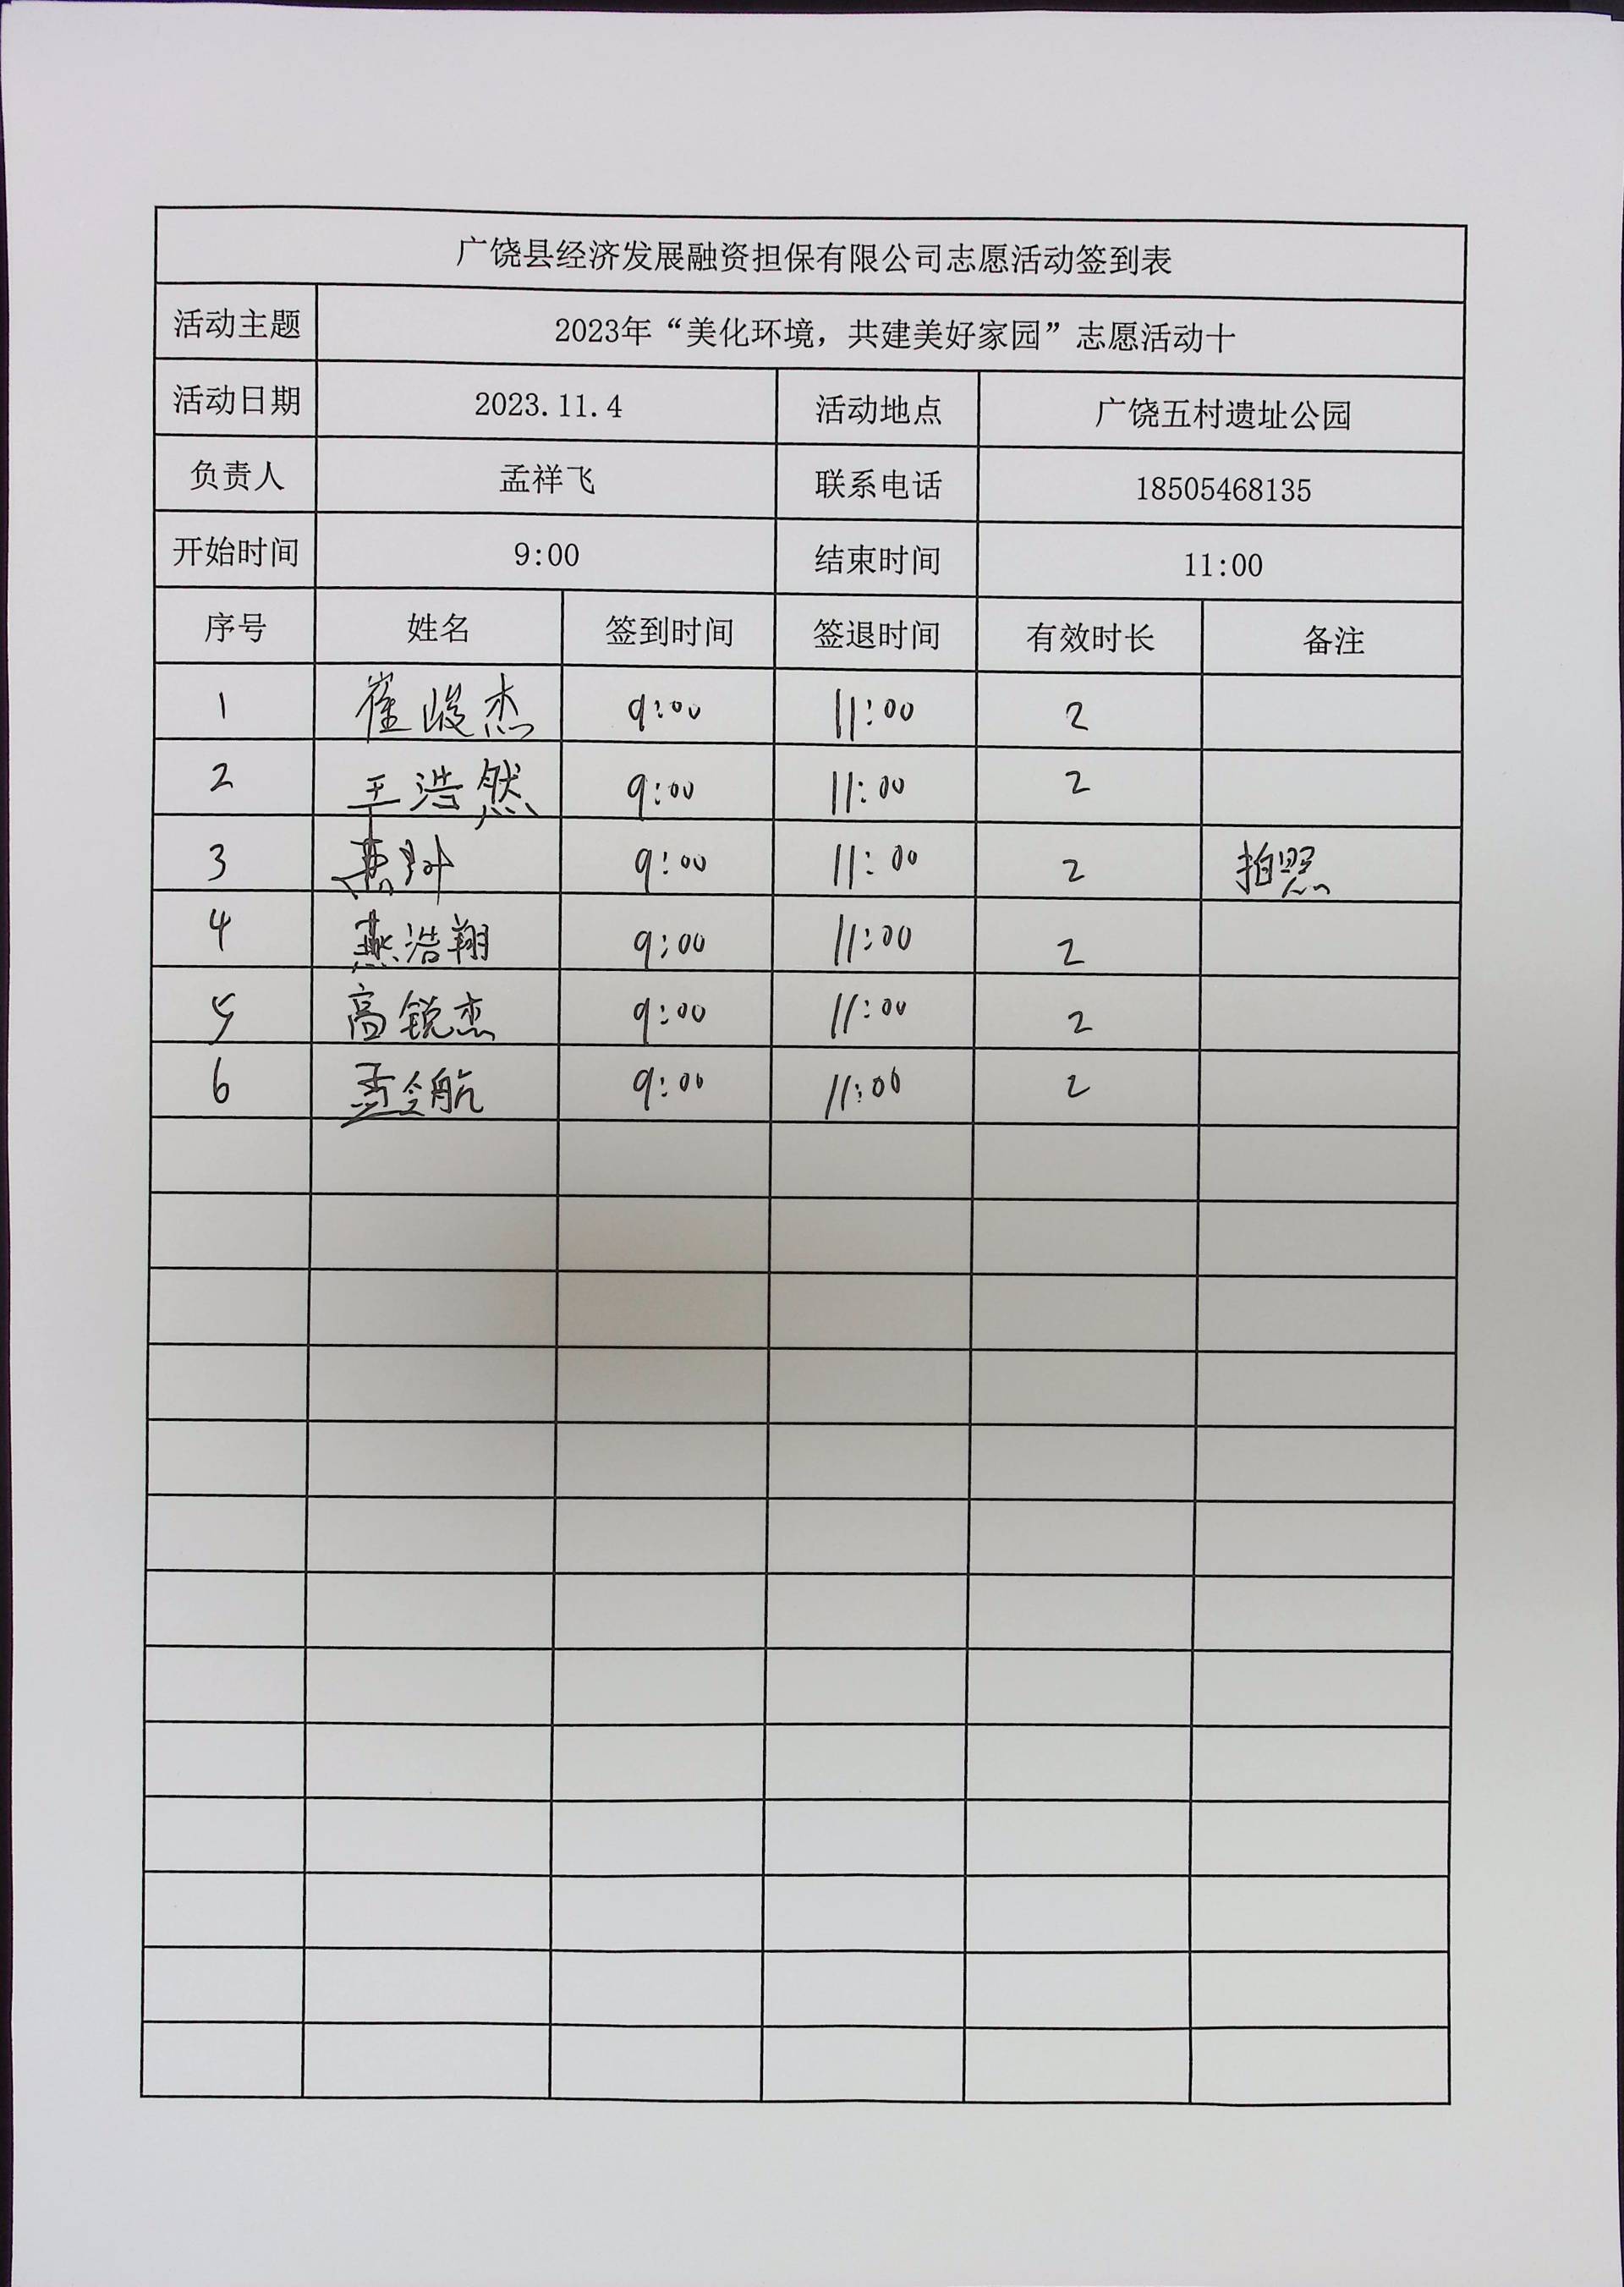 广饶县经济发展融资担保有限公司志愿活动签到表
活动主题 2023年“美化环境，共建美好家园”志愿活动十
活动日期 2023.11.4 活动地点 广饶五村遗址公园
负责人 孟祥飞 联系电话 18505468135
开始时间 9:00 结束时间 11:00
序号 姓名 签到时间 签退时间 有效时长 备注
1 崔峻杰 9:00 11:00 2
2 王浩然 9:00 11:00 2
3 9:00 11:00 2 拍照
4 燕浩翔 9:00 11:00 2
5 高锐杰 9:00 11:00 2
6 孟令航 9:00 11:00 2